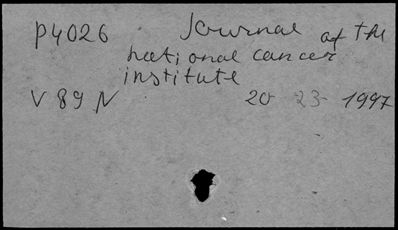 P4026 Journal of the
national cancer
institute
V 89 N 20 23 1997